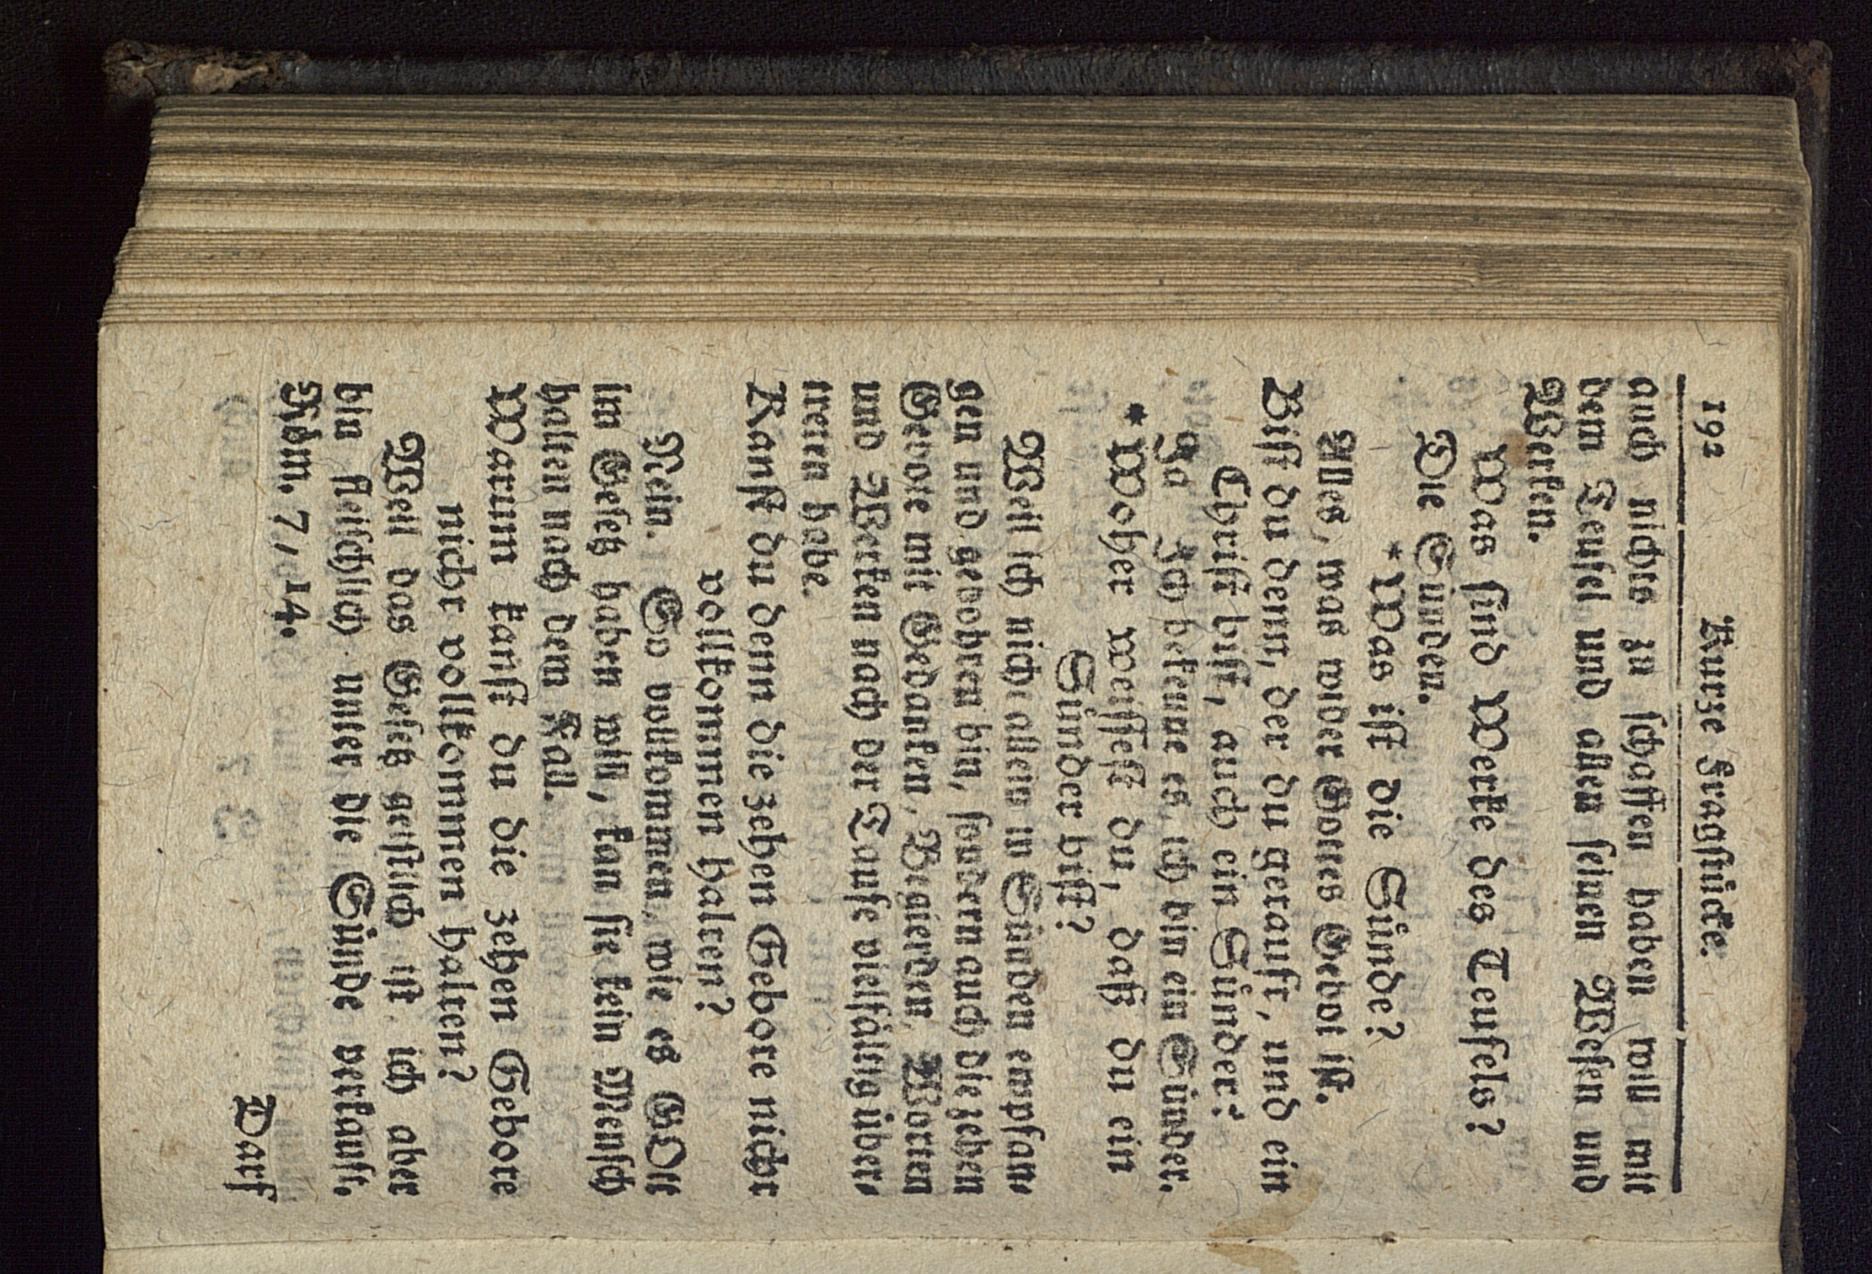 192 Kurze Fragstücke.
auch nichts zu schaffen haben will mit
dem Teufel und allen seinen Wesen und
Werken.
Was sind Werke des Teufels?
Die Sünden.
*Was ist die Sünde?
Alles, was wider Gottes Gebot ist.
Bist du denn, der du getauft, und ein
Christ bist, auch ein Sünder?
Ja Ich bekenne es, ich bin ein Sünder.
*Woher weissest du, daß du ein
Sünder bist?
Weil ich nicht allein in Sünden empfan-
gen und gebohren bin, sondern auch die zehen
Gebote mit Gedanken, Begierden, Worten
und Werken nach der Taufe vielfältig über-
treten habe.
Kanst du denn die zehen Gebote nicht
vollkommen halten?
Nein. So vollkommen, wie es GOtt
im Gesetz haben will, kan sie kein Mensch
halten nach dem Fall.
Warum kanst du die zehen Gebote
nicht vollkommen halten?
Weil das Gesetz geistlich ist, ich aber
bin fleischlich unter die Sünde verkauft.
Röm. 7, 14.
Darf